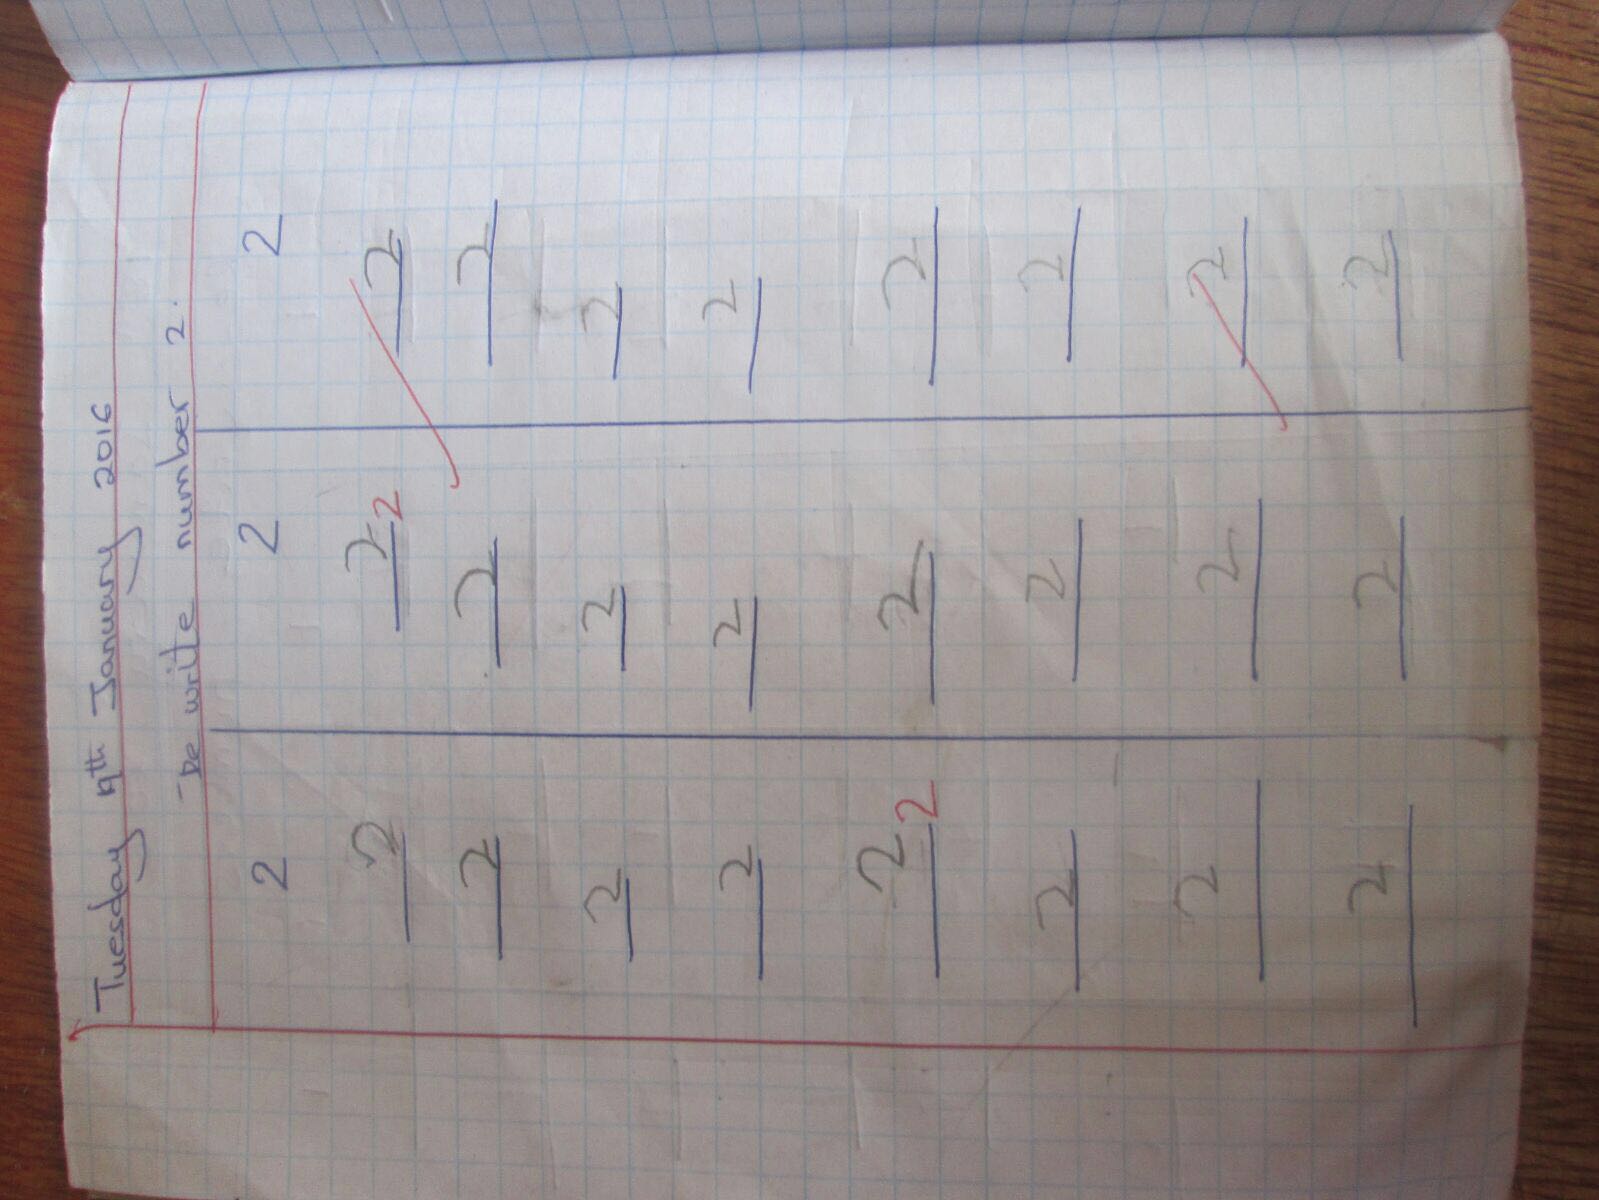 Tuesday 19th January 2016
Re write number 2.
2 2 2
2 2 2 2
2 2 2
2 2 2
2 2 2
2 2 2 2
2 2 2
2 2 2
2 2 2